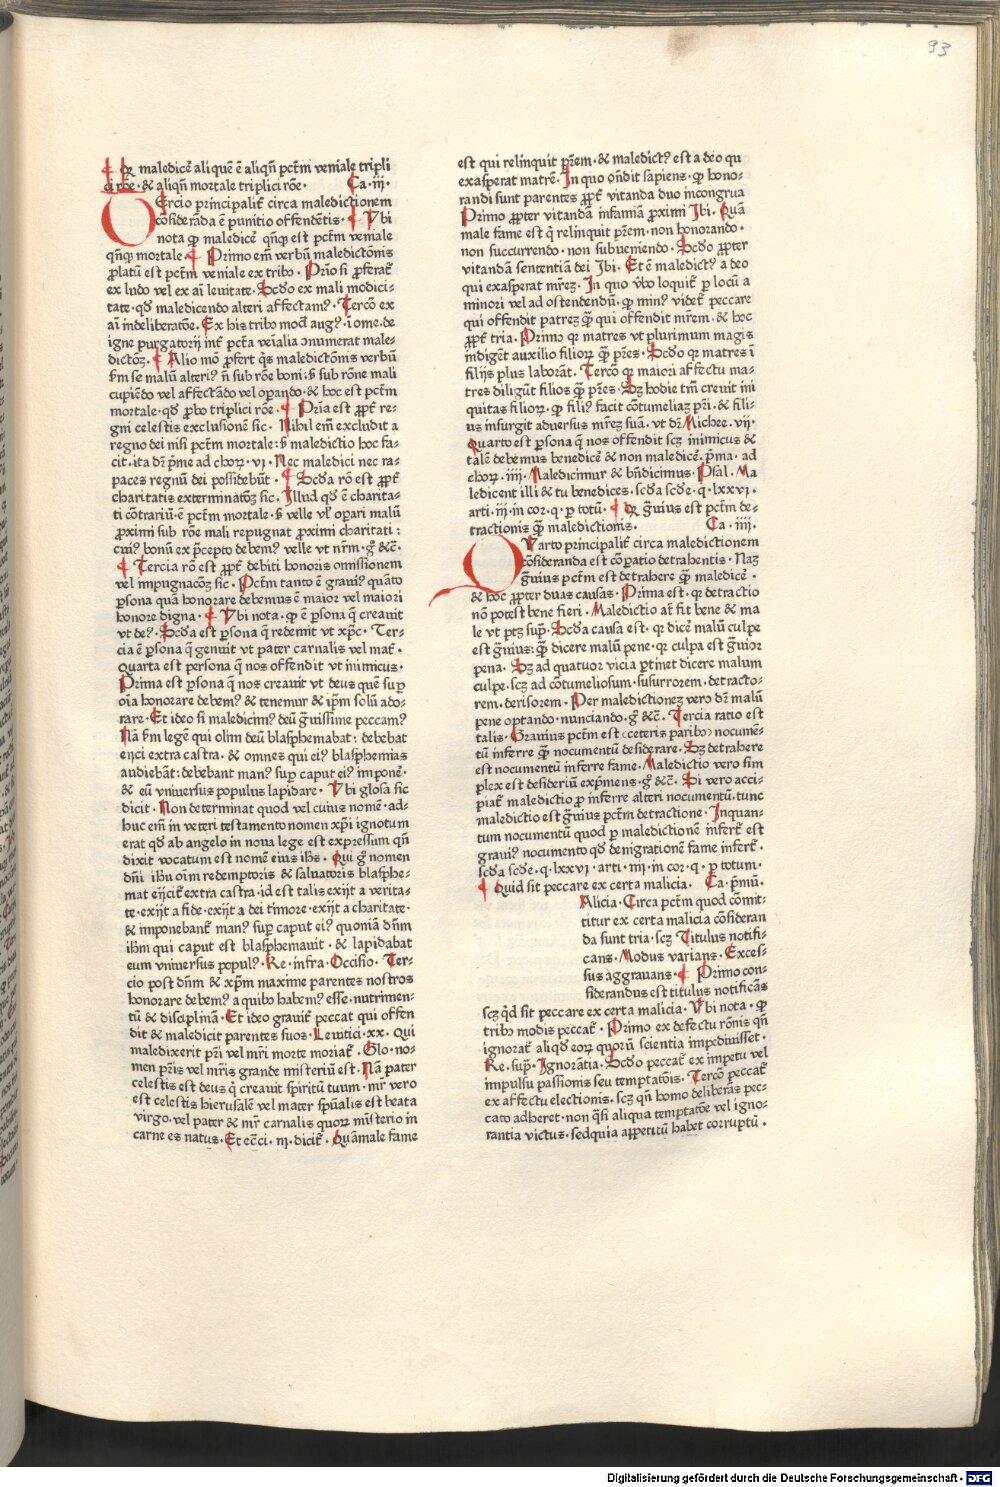 93
qꝛ maledicē aliquē ē aliqn̄ pctm̄ veniale tripli
ci rōe · & aliqn̄ mortale triplici rōe · Ca · iij ·
Tercio principalit̄ circa maledictionem
cōsiderāda ē punitio offendētis · Vbi
nota ꝙ maledicē qn̄qꝫ est pctm̄ veniale
qn̄qꝫ mortale · Primo em̄ verbū maledictōnis
ꝓlatū est pctm̄ veniale ex tribꝰ · Prīo si ꝓferat̄
ex ludo vel ex aī leuitate · Scd̄o ex mali modici-
tate · qd̄ maledicendo alteri affectamꝰ · Tercō ex
aī indeliberatōne · Ex his tribꝰ
igne purgatorij int̄ pctā veīalia ↄnumerat male-
dictōꝫ · Alio mō ꝓfert q̄s maledictōnis verbū
ẜm se malū alteriꝰ n̄ sub rōe boni · sꝫ sub rōne mali
cupiēdo vel affectādo vel optando · & hoc est pctm̄
mortale · qd̄ ꝓbo triplici rōe · Pria est ꝓpt̄ re-
gni celestis exclusionē sic · Nihil em̄ excludit a
regno dei nisi pctm̄ mortale : sꝫ maledictio hoc fa-
cit · ita dꝛ pͥme ad choꝝ · vi · Nec maledici nec ra-
paces regnū dei possidebūt · Scd̄a rō est ꝓpt̄
charitatis exterminatōꝫ sic · Illud qd̄ ē charita-
ti cōtrariū · ē pctm̄ mortale · sꝫ velle vl̓ optari malū
ꝓximi sub rōe mali repugnat ꝓximi charitati :
cuiꝰ bonū ex p̄cepto debemꝰ velle vt nr̄m · gͦ &c̄ ·
Tercia rō est ꝓpt̄ debiti honoris omissionem
vel impugnacōꝫ sic · Pctm̄ tanto ē grauiꝰ quāto
ꝑsona quā honorare debemus ē maior vel maiori
honore digna · Vbi nota · ꝙ ē ꝑsona q̄ creauit
vt deꝰ · Scd̄a est ꝑsona q̄ redemit vt xp̄c · Ter-
cia ē ꝑsona q̄ genuit vt pater carnalis vel mat̄ ·
Quarta est persona q̄ nos offendit vt inimicus ·
Prima est ꝑsona q̄ nos creauit vt deus quē suꝑ
oīa honorare debemꝰ & tenemur & ip̄m solū ado-
rare · Et ideo si maledicimꝰ deū g̈uissime peccamꝰ
Nā ẜm legē qui olim deū blasphemabat : debebat
eijci extra castra · & omnes qui eiꝰ blasphemias
audiebāt : debebant manꝰ suꝑ caput eiꝰ imponē ·
& eū vniuersus populus lapidare · Vbi glosa sic
dicit · Non determinat quod vel cuius nomē · ad-
huc em̄ in veteri testamento nomen xp̄i ignotum
erat qd̄ ab angelo in noua lege est expressum qn̄
dixit vocatum est nomē eius ihs̄ · Qui gͦ nomen
dn̄i ihū oīm redemptoris & saluatoris blasphe-
mat eijcit̄ extra castra · id est talis exijt a verita-
te · exijt a fide · exijt a dei timore · exijt a charitate ·
& imponebant̄ manꝰ suꝑ caput eiꝰ quoniā dn̄m
ihm̄ qui caput est blasphemauit · & lapidabat
eum vniuersus populꝰ · Re · infra · Occisio · Ter-
cio post dn̄m & xp̄m maxime parentes nostros
honorare debemꝰ a quibꝰ habemꝰ esse · nutrimen-
tū & disciplinā · Et ideo grauit̄ peccat qui offen
dit & maledicit parentes suos · Leuitici · xx · Qui
maledixerit pr̄i vel mr̄i morte moriat̄ · Glo · no-
men pr̄is vel mr̄is grande misteriū est · Nā pater
celestis est deus q̇ creauit spiritū tuum · mr̄ vero
est celestis hierusalē vel mater sp̄ualis est beata
virgo · vel pater & mr̄ carnalis quoꝝ misterio in
carne es natus · Et ecc̄i · iij · dicit̄ · Quā male fame
est qui relinquit pr̄em · & maledictꝰ est a deo qui
exasperat matrē · In quo oñdit sapiens · ꝙ hono-
randi sunt parentes ꝓpt̄ vitanda duo incongrua
Primo ꝓpter vitandā infamiā ꝓximi Ibi · Quā
male fame est q̇ relinquit pr̄em · non honorando ·
non succurrendo · non subueniendo · Scd̄o ꝓpter
vitandā sententiā dei Ibi · Et ē maledictꝰ a deo
qui exasperat mr̄eꝫ · In quo v̓bo loquit̄ ꝑ locū a
minori vel ad ostendendū · ꝙ minꝰ videt̄ peccare
qui offendit patreꝫ qꝫ̄ qui offendit mr̄em · & hoc
ꝓpt̄ tria · Primo qꝛ matres vt plurimum magis
indigēt auxilio filioꝝ qꝫ̄ pr̄es · Scd̄o qꝛ matres ī
filijs plus laborāt · Tercō qꝛ maiori affectu ma-
tres diligūt filios qꝫ̄ pr̄es · Sꝫ hodie tm̄ creuit ini
quitas filioꝝ · ꝙ filiꝰ facit cōtumeliaꝫ pr̄i · & fili-
us insurgit aduersus mr̄eꝫ suā · vt dꝛ Michee · vij ·
Quarto est ꝑsona q̄ nos offendit scꝫ inimicus &
talē debemus benedicē & non maledicē · pͥma · ad
choꝝ · iiij · Maledicimur & bn̄dicimus · Psal · Ma
ledicent illi & tu benedices · scd̄a scd̄e · q · lxxvi ·
arti · iij · in cor · q · ꝑ totū · qꝛ g̈uius est pctm̄ de-
tractionis qꝫ̄ maledictionis · Ca · iiij ·
Quarto principalit̄ circa maledictionem
cōsideranda est cōꝑatio detrahentis · Naꝫ
g̈uius pctm̄ est detrahere qꝫ̄ maledicē ·
& hoc ꝓpter duas causas · Prima est · qꝛ detractio
nō potest bene fieri · Maledictio at̄ fit bene & ma
le vt ptꝫ supͣ · Scd̄a causa est · qꝛ dicē malū culpe
est g̈uius : qꝫ̄ dicere malū pene · qꝛ culpa est g̈uior
pena · Sꝫ ad quatuor vicia ꝑtinet dicere malum
culpe · scꝫ ad cōtumeliosum · susurrorem · detracto-
rem · derisorem · Per maledictioneꝫ vero dꝛ malū
pene optando · nunciando · gͦ &c̄ · Tercia ratio est
talis · Grauius pctm̄ est (ceteris paribꝰ) nocumē-
tū inferre qꝫ̄ nocumentū desiderare · Sꝫ detrahere
est nocumentū inferre fame · Maledictio vero sim
plex est desideriū exp̄mens · gͦ &c̄ · Si vero acci-
piat̄ maledictio ꝑ inferre alteri nocumentū · tunc
maledictio est g̈uius pctm̄ detractione · Inquan-
tum nocumentū quod ꝑ maledictionē infert̄ est
grauiꝰ nocumento qd̄ denigrationē fame infert̄ ·
scd̄a scd̄e · q · lxxvi · arti · iiij · in cor · q · ꝑ totum ·
Quid sit peccare ex certa malicia · Ca · pͥmū ·
Alicia · Circa pctm̄ quod cōmit-
titur ex certa malicia cōsideran
da sunt tria · scꝫ Titulus notifi-
cans · Modus varians · Exces-
sus aggrauans · Primo con-
siderandus est titulus notificās
scꝫ qd̄ sit peccare ex certa malicia · Vbi nota · ꝙ
tribꝰ modis peccat̄ · Primo ex defectu rōnis qn̄
ignorat̄ aliqd̄ eoꝝ quoꝝ scientia impediuisset ·
Re · supͣ · Ignorātia · Scd̄o peccat̄ ex impetu vel
impulsu passionis seu temptatōis · Tercō peccat̄
ex affectu electionis · scꝫ qn̄ homo deliberās pec-
cato adheret · non qͣsi aliqua temptatōe vel igno-
rantia victus · sed quia appetitū habet corruptū ·
Digitalisierung gefördert durch die Deutsche Forschungsgemeinschaft - DFG